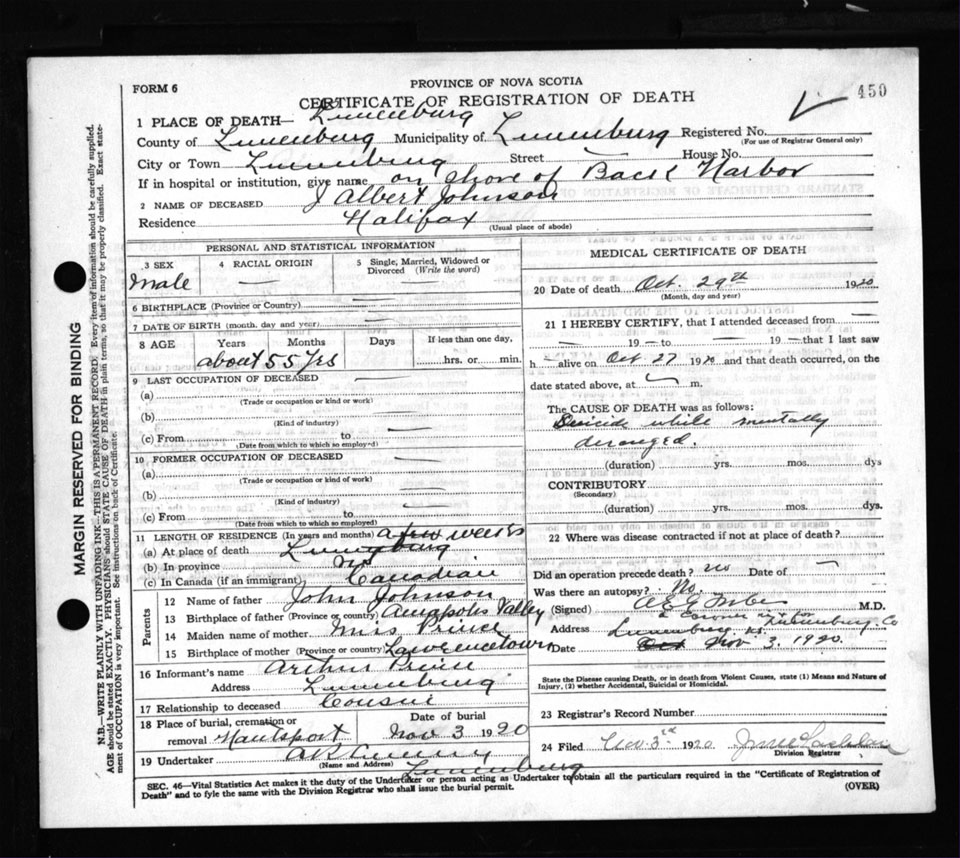 PROVINCE OF NOVA SCOTIA
FORM 6
CERTIFICATE OF REGISTRATION OF DEATH
450
1 PLACE OF DEATH— Lunenburg
County of Lunenburg Municipality of Lunenburg Registered No.
(For use of Registrar General only)
City or Town Lunenburg Street — House No.
If in hospital or institution, give name on shore of Back Harbor
2 NAME OF DECEASED J Albert Johnson
Residence Halifax (Usual place of abode)
PERSONAL AND STATISTICAL INFORMATION
3 SEX Male
4 RACIAL ORIGIN —
5 Single, Married, Widowed or Divorced (Write the word) —
6 BIRTHPLACE (Province or Country) —
7 DATE OF BIRTH (month, day and year) —
8 AGE Years Months Days If less than one day,
about 55 yrs hrs. or min.
9 LAST OCCUPATION OF DECEASED
(a) —
(Trade or occupation or kind or work)
(b) —
(Kind of industry)
(c) From to —
(Date from which to which so employed)
10 FORMER OCCUPATION OF DECEASED
(a) —
(Trade or occupation or kind of work)
(b) —
(Kind of industry)
(c) From to —
(Date from which to which so employed)
11 LENGTH OF RESIDENCE (In years and months) a few weeks
(a) At place of death Lunenburg
(b) In province
(c) In Canada (if an immigrant) Canadian
Parents
12 Name of father John Johnson
13 Birthplace of father (Province or country) Annapolis Valley
14 Maiden name of mother Mrs Prince
15 Birthplace of mother (Province or country) Lawrencetown
16 Informant's name Arthur Prince
Address Lunenburg
17 Relationship to deceased Cousin
18 Place of burial, cremation or removal Hantsport
Date of burial Nov 3 1920
19 Undertaker
(Name and Address) Lunenburg
MEDICAL CERTIFICATE OF DEATH
20 Date of death Oct. 29th 1920
(Month, day and year)
21 I HEREBY CERTIFY, that I attended deceased from —
— 19 — to — 19 — that I last saw
h alive on Oct 27 1920 and that death occurred, on the
date stated above, at — m.
The CAUSE OF DEATH was as follows:
Suicide while mentally
deranged.
(duration) yrs. mos. dys
CONTRIBUTORY
(Secondary)
(duration) yrs. mos. dys.
22 Where was disease contracted if not at place of death?
Did an operation precede death? no Date of —
Was there an autopsy? No
(Signed) M.D.
Lunenburg Co
Address Lunenburg NS.
Date Oct Nov 3 1920.
State the Disease causing Death, or in death from Violent Causes, state (1) Means and Nature of
Injury, (2) whether Accidental, Suicidal or Homicidal.
23 Registrar's Record Number
24 Filed Nov 3rd 1920
Division Registrar
SEC. 46—Vital Statistics Act makes it the duty of the Undertaker or person acting as Undertaker to obtain all the particulars required in the "Certificate of Registration of
Death" and to fyle the same with the Division Registrar who shall issue the burial permit.
(OVER)
MARGIN RESERVED FOR BINDING
N.B.—WRITE PLAINLY WITH UNFADING INK—THIS IS A PERMANENT RECORD. Every item of information should be carefully supplied.
AGE should be stated EXACTLY. PHYSICIANS should STATE CAUSE OF DEATH in plain terms, so that it may be properly classified. Exact state-
ment of OCCUPATION is very important. See instructions on back of Certificate.